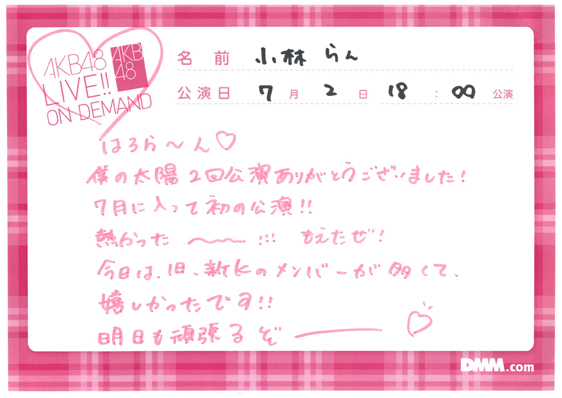 AKB48
LIVE!!
ON DEMAND
AKB
48
名前 小林 らん
公演日 7月 2日 18:00 公演
はろら〜ん♡
僕の太陽2回公演ありがとうございました!
7月に入って初の公演!!
熱かった 〜〜 !!! もえたぜ!
今日は、旧、新Kのメンバーが多くて、
嬉しかったです!!
明日も頑張るぞ ――― ♡
DMM.com